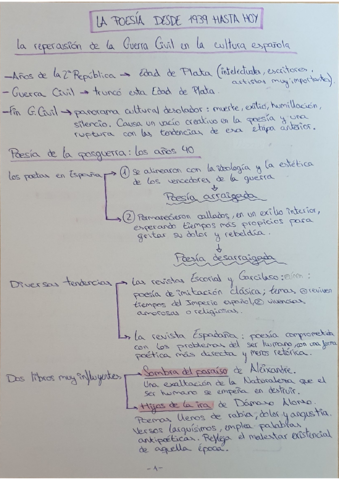 LA POESÍA DESDE 1939 HASTA HOY
La repercusión de la Guerra Civil en la cultura española
-Años de la 2ª República → Edad de Plata (intelectuales, escritores,
artistas muy importantes).
-Guerra Civil → truncó esta Edad de Plata.
-Fin G.Civil → panorama cultural desolador: muerte, exilio, humillación,
silencio. Causa un vacío creativo en la poesía y una
ruptura con las tendencias de esa etapa anterior.
Poesía de la posguerra: los años 40
Los poetas en España
① Se alinearon con la ideología y la estética
de los vencedores de la guerra
Poesía arraigada
② Permanecieron callados, en un exilio interior,
esperando tiempos más propicios para
gritar su dolor y rebeldía.
Poesía desarraigada
Diversas tendencias
La revista Escorial y Garcilaso:
poesía de imitación clásica, temas ① reviven
tiempos del Imperio español ② vivencias
amorosas o religiosas.
La revista Espadaña: poesía comprometida
con los problemas del ser humano, con una forma
poética más directa y menos retórica.
Dos libros muy influyentes
Sombra del paraíso de Aleixandre.
Una exaltación de la Naturaleza que el
ser humano se empeña en destruir.
Hijos de la ira, de Dámaso Alonso.
Poemas llenos de rabia, dolor y angustia.
Versos larguísimos, emplea palabras
antipoéticas. Refleja el malestar existencial
de aquella época.
-1-